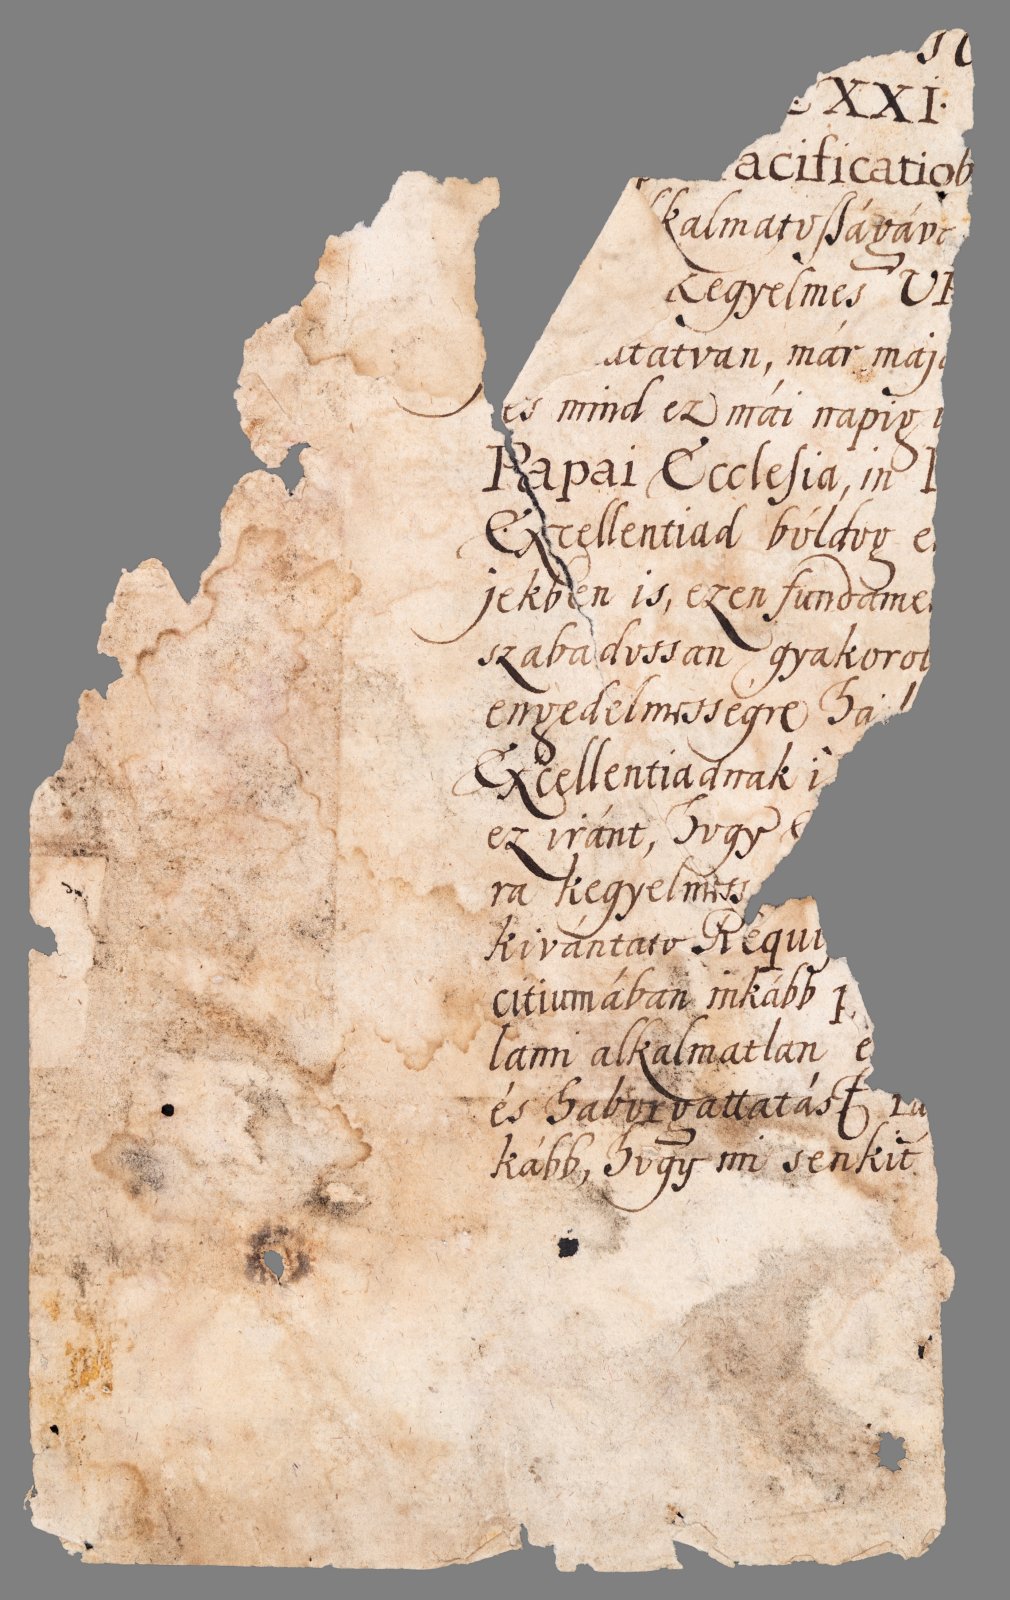 XXI.
acificatiob
kalmatosságáva
Kegyelmes
atatvan, már
es mind ez mái napig
Papai Ecclesia, in
Excellentiad bóldog
jekben is, ezen fundame
szabadossan gyakorol
engedelmességre há
Excellentiadnak
ez iránt, hogy
ra kegyelmess
kivántato Requi
citiumában inkább
lanni alkalmatlan
és haborgattatást
kább, hogy mi senkit